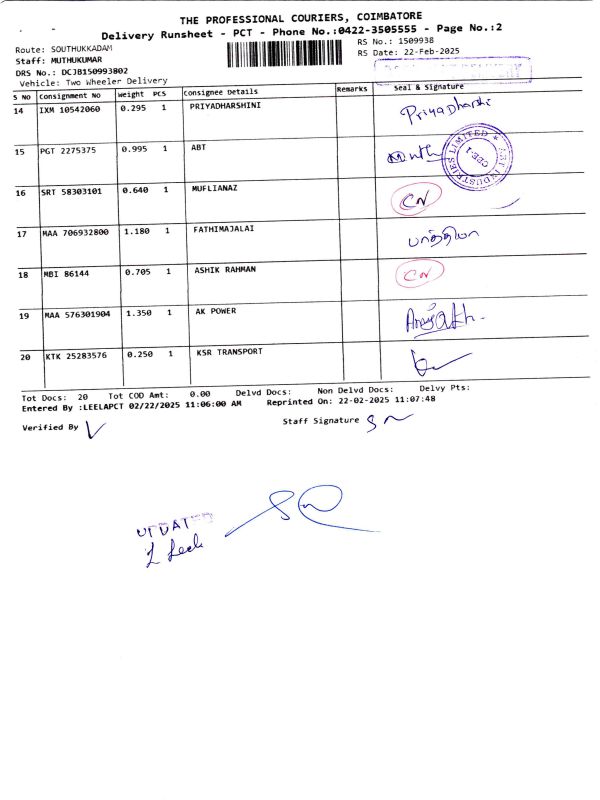 THE PROFESSIONAL COURIERS, COIMBATORE
Delivery Runsheet - PCT - Phone No.:0422-3505555 - Page No.:2
Route: SOUTHUKKADAM
RS No.: 1509938
Staff: MUTHUKUMAR
RS Date: 22-Feb-2025
DRS No.: DCJB150993802
Vehicle: Two Wheeler Delivery
S No Consignment No Weight PCS Consignee Details Remarks Seal & Signature
14 IXM 10542060 0.295 1 PRIYADHARSHINI Priyadharshi
15 PGT 2275375 0.995 1 ABT
INDUSTRIES LIMITED ★
16 SRT 58303101 0.640 1 MUFLIANAZ CN
17 MAA 706932800 1.180 1 FATHIMAJALAI பாத்திமா
18 MBI 86144 0.705 1 ASHIK RAHMAN CN
19 MAA 576301904 1.350 1 AK POWER
20 KTK 25283576 0.250 1 KSR TRANSPORT
Tot Docs: 20 Tot COD Amt: 0.00 Delvd Docs: Non Delvd Docs: Delvy Pts:
Entered By :LEELAPCT 02/22/2025 11:06:00 AM Reprinted On: 22-02-2025 11:07:48
Verified By
Staff Signature
UPDATED